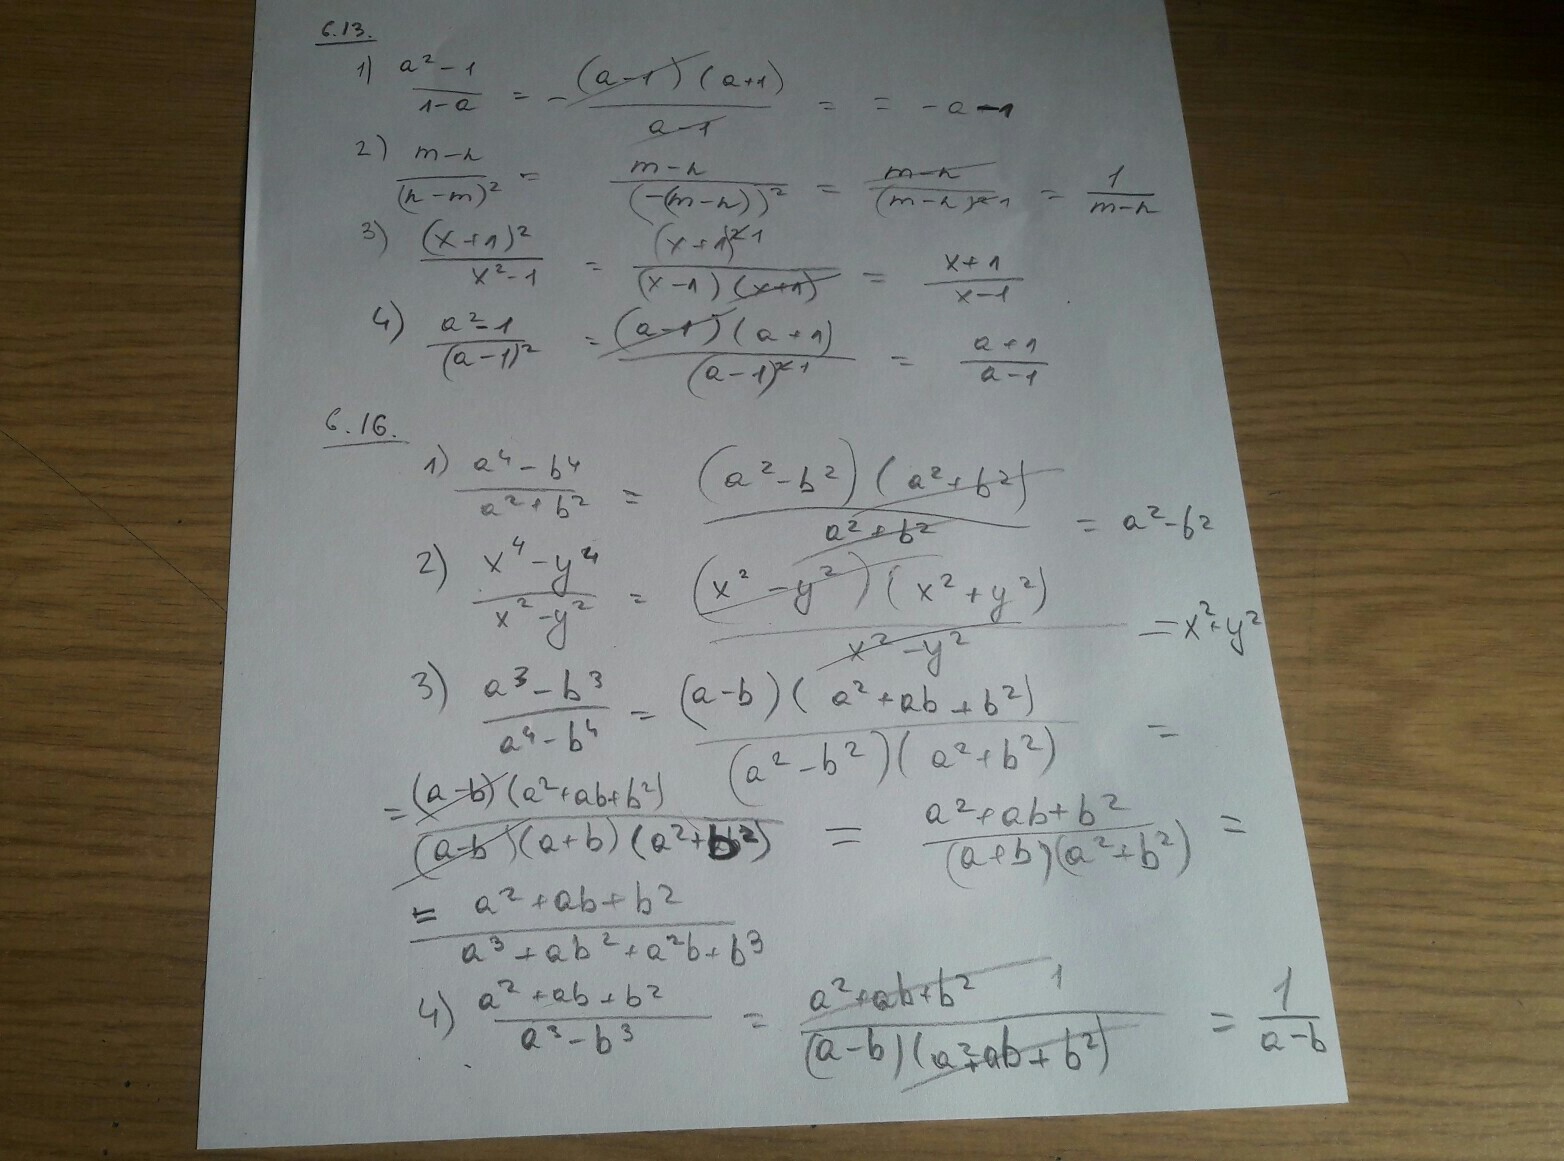 6.13.
1) (a²-1)/(1-a) = -((a-1)(a+1))/(a-1) = = -a-1
2) (m-n)/(n-m)² = (m-n)/(-(m-n))² = (m-n)/(m-n)²¹ = 1/(m-n)
3) (x+1)²/(x²-1) = (x+1)²¹/((x-1)(x+1)) = (x+1)/(x-1)
4) (a²-1)/(a-1)² = ((a-1)(a+1))/(a-1)²¹ = (a+1)/(a-1)
6.16.
1) (a⁴-b⁴)/(a²+b²) = ((a²-b²)(a²+b²))/(a²+b²) = a²-b²
2) (x⁴-y⁴)/(x²-y²) = ((x²-y²)(x²+y²))/(x²-y²) = x²+y²
3) (a³-b³)/(a⁴-b⁴) = ((a-b)(a²+ab+b²))/((a²-b²)(a²+b²)) =
= ((a-b)(a²+ab+b²))/((a-b)(a+b)(a²+b²)) = (a²+ab+b²)/((a+b)(a²+b²)) =
= (a²+ab+b²)/(a³+ab²+a²b+b³)
4) (a²+ab+b²)/(a³-b³) = (a²+ab+b² 1)/((a-b)(a²+ab+b²)) = 1/(a-b)